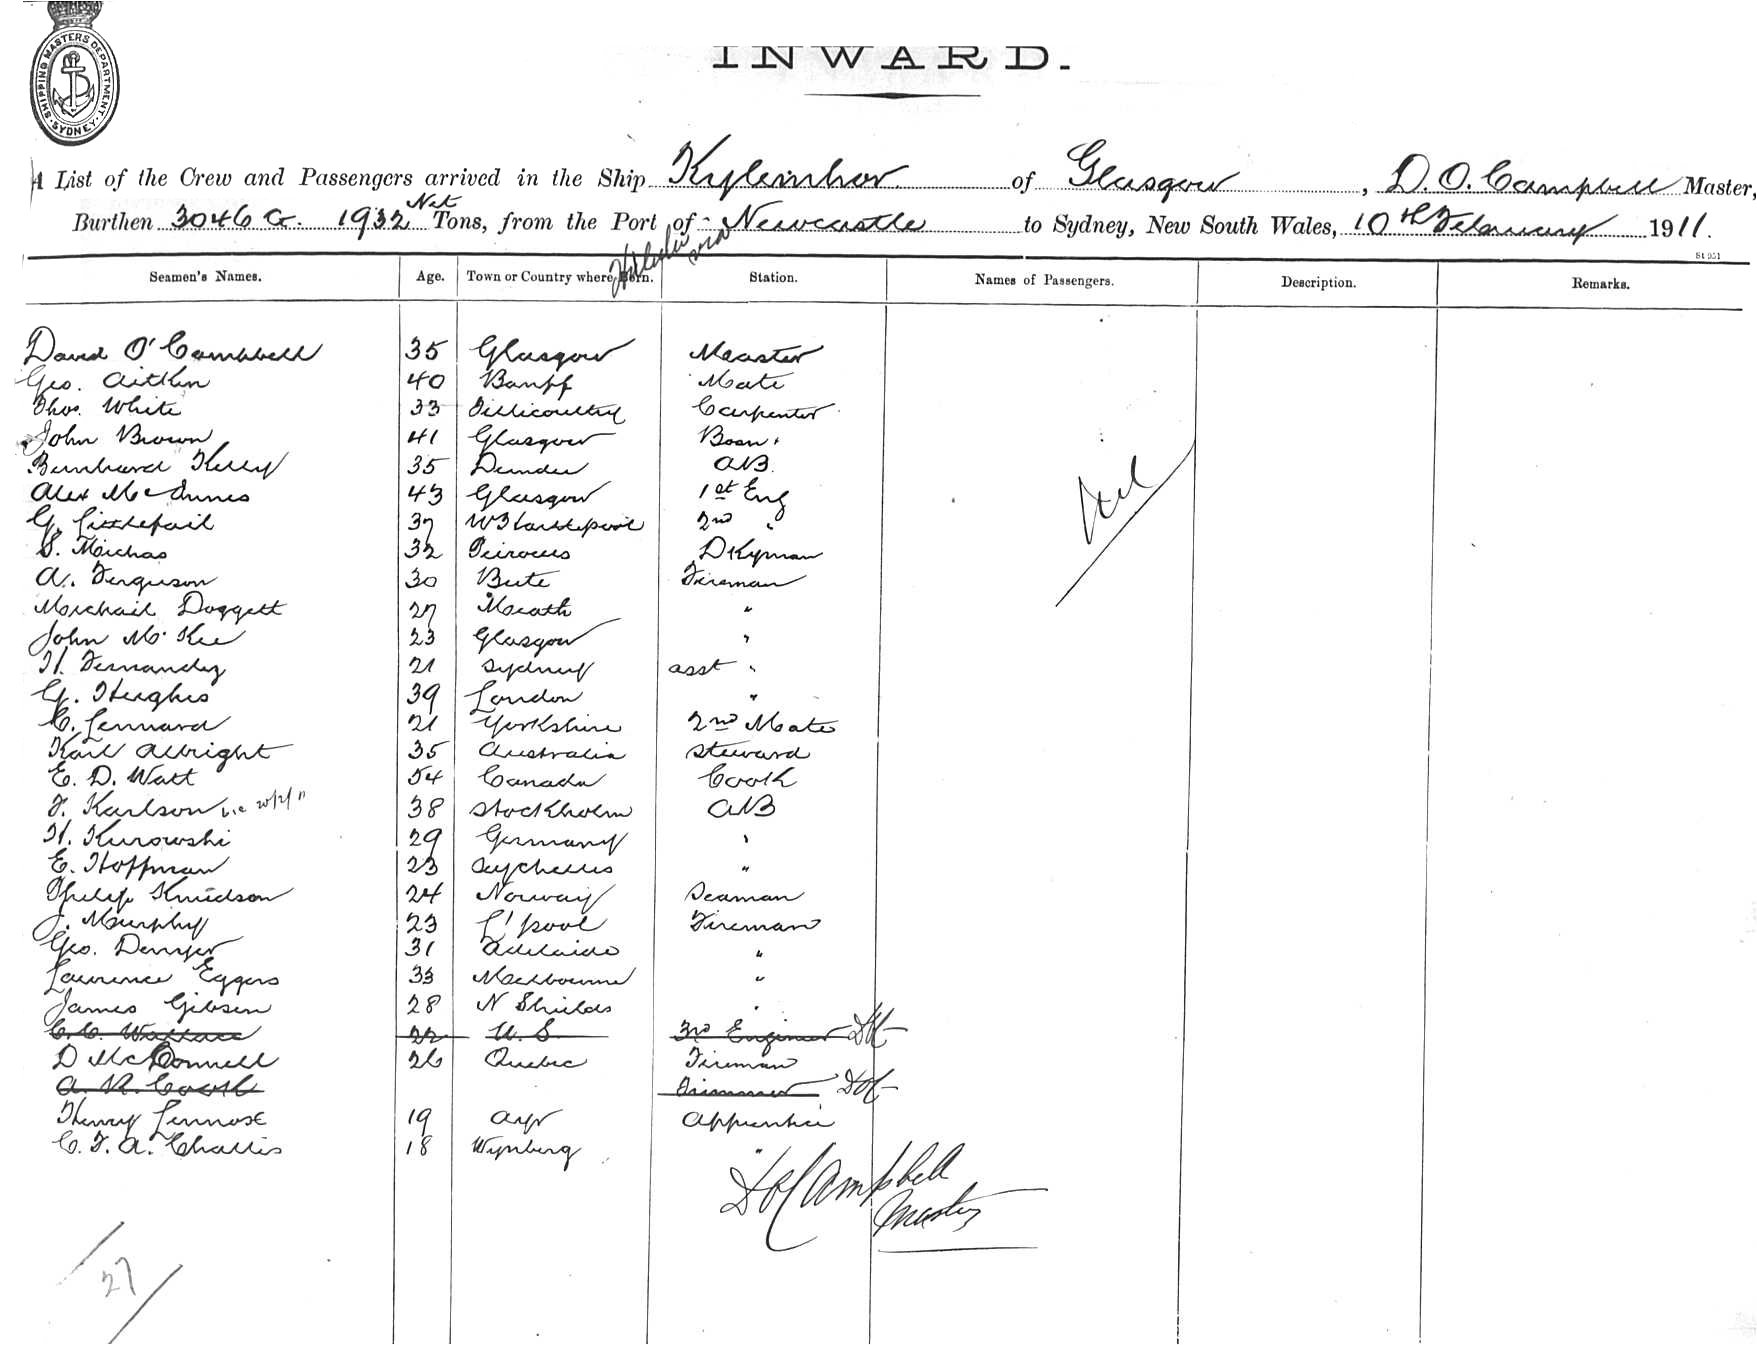 SHIPPING MASTERS DEPARTMENT
SYDNEY
INWARD.
A List of the Crew and Passengers arrived in the Ship Kyleinhor of Glasgow, D. O. Campbell Master,
Burthen 3046 G. 1932 Net Tons, from the Port of Newcastle to Sydney, New South Wales, 10th February 1911.
via
Seamen's Names. Age. Town or Country where Born. Station. Names of Passengers. Description. Remarks.
David O' Campbell 35 Glasgow Master
Geo. Aitken 40 Banff Mate
Thos. White 33 Tillicoultry Carpenter
John Brown 41 Glasgow Bosn.
Bernhard Kelly 35 Dundee AB.
Alex McInnes 43 Glasgow 1st Eng
G. Littlefail 37 W Hartlepool 2nd "
S. Michas 32 Peiraeus DKyman
A. Ferguson 30 Bute Fireman
Michail Doggett 27 Meath "
John McKee 23 Glasgow "
H. Fernandez 21 Sydney asst "
G. Hughes 39 London "
C. Lennard 21 Yorkshire 2nd Mate
Karl Albright 35 Australia Steward
E. D. Watt 54 Canada Cook
F. Karlson 38 Stockholm AB
H. Kurowski 29 Germany "
E. Hoffman 23 Seychelles "
Philip Knudson 24 Norway Seaman
J. Murphy 23 L'pool Fireman
Geo. Denyer 31 Adelaide "
Laurence Eggers 33 Melbourne "
James Gibson 28 N Shields "
C. C. Wallace 22 U.S. 3rd Engineer
D McConnell 26 Quebec Fireman
A. R. Cook Trimmer
Henry Lennox 19 Ayr Apprentice
C. F. A. Challis 18 Wynberg "
Nil
D O Campbell
Master
27